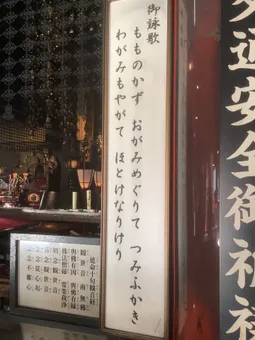 交通安全御祈
御詠歌
もものかず おがみめぐりて つみふかき
わがみもやがて ほとけなりけり
延命十句観音経
観世音 南無佛
與佛有因 與佛有縁
佛法僧縁 常楽我浄
朝念観世音
暮念観世音
念念従心起
念念不離心